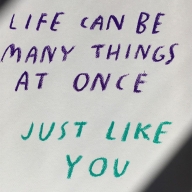 LIFE CAN BE
MANY THINGS
AT ONCE
JUST LIKE
YOU